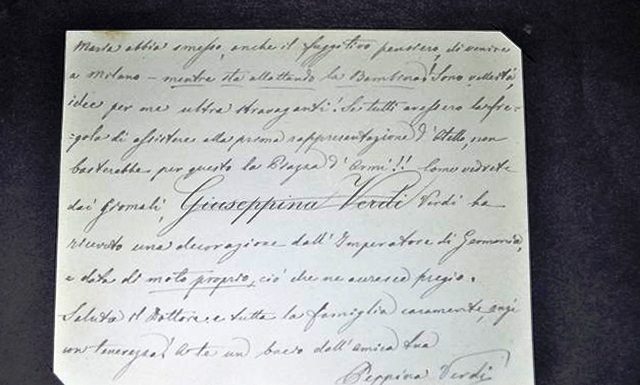 Maria abbia smesso, anche il fuggitivo pensiero, di venire
a Milano – mentre sta allattando la Bambina! Sono velleità,
idee per me ultra stravaganti! Se tutti avessero la fre=
=gola di assistere alla prima rappresentazione d'Otello, non
basterebbe per questo la Piazza d'Armi!! Come vedrete
dai Giornali, Giuseppina Verdi Verdi ha
ricevuto una decorazione dall'Imperatore di Germania,
e data di moto proprio, ciò che ne accresce pregio.
Saluta il Dottore e tutta la famiglia caramente, anzi
con tenerezza! A te un bacio dall'amica tua
Peppina Verdi